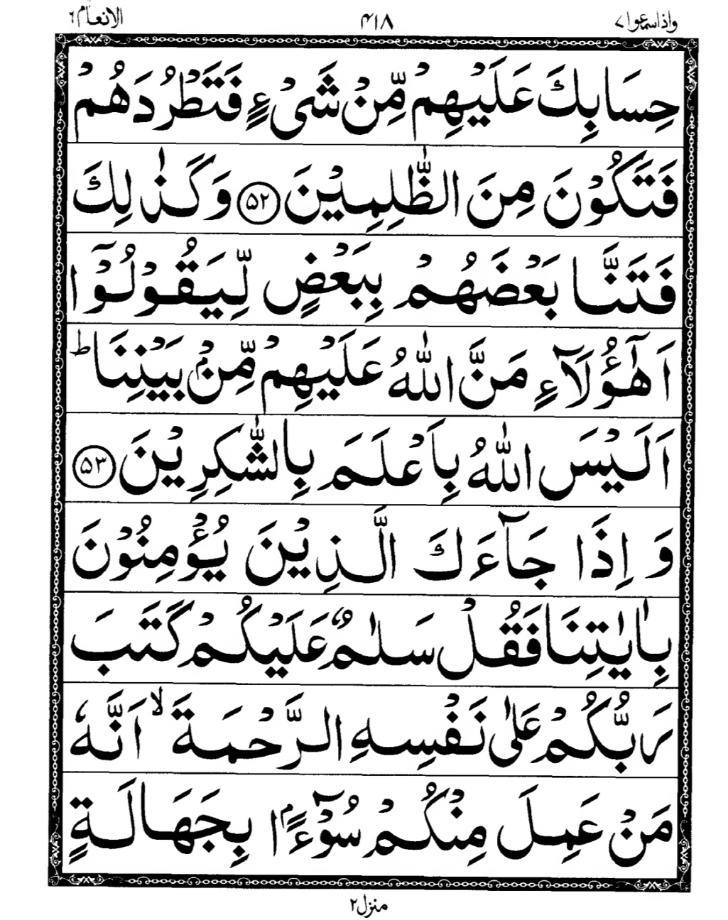 واذاسمعوا٧ ۴۱۸ الانعام٦
حِسَابِكَ عَلَيْهِمْ مِّنْ شَيْءٍ فَتَطْرُدَهُمْ
فَتَكُوْنَ مِنَ الظّٰلِمِيْنَ ﴿۵۲﴾ وَكَذٰلِكَ
فَتَنَّا بَعْضَهُمْ بِبَعْضٍ لِّيَقُوْلُوْۤا
اَهٰۤؤُلَآءِ مَنَّ اللّٰهُ عَلَيْهِمْ مِّنْۢ بَيْنِنَا ؕ
اَلَيْسَ اللّٰهُ بِاَعْلَمَ بِالشّٰكِرِيْنَ ﴿۵۳﴾
وَ اِذَا جَآءَكَ الَّذِيْنَ يُؤْمِنُوْنَ
بِاٰيٰتِنَا فَقُلْ سَلٰمٌ عَلَيْكُمْ كَتَبَ
رَبُّكُمْ عَلٰى نَفْسِهِ الرَّحْمَةَ ۙ اَنَّهٗ
مَنْ عَمِلَ مِنْكُمْ سُوْٓءًۢا بِجَهَالَةٍ
منزل۲